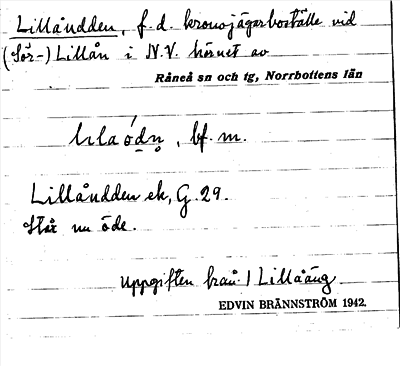 Lillåudden, f.d. kronojägarboställe vid
(Sör-) Lillån i N.V. hörnet av
Råneå sn och tg, Norrbottens län
bf. m.
Lillåudden ek, G. 29.
Står nu öde.
Uppgiften från 1 Lillåäng
EDVIN BRÄNNSTRÖM 1942.